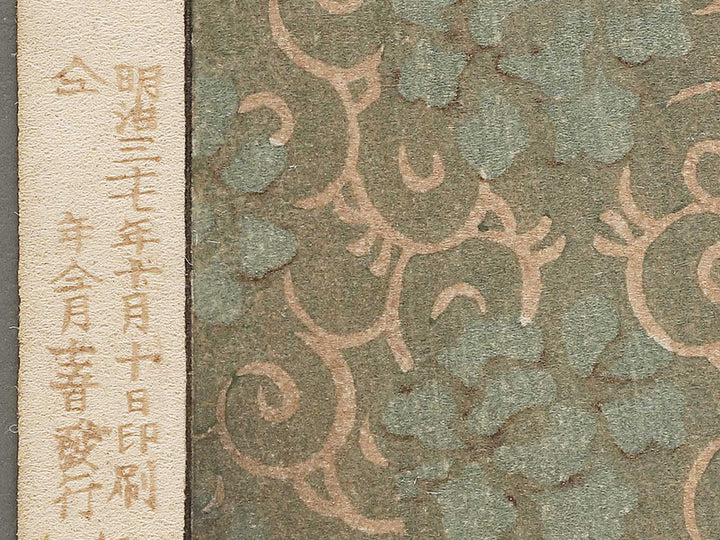 明治三十七年十月十日印刷
仝 年仝月十五日発行